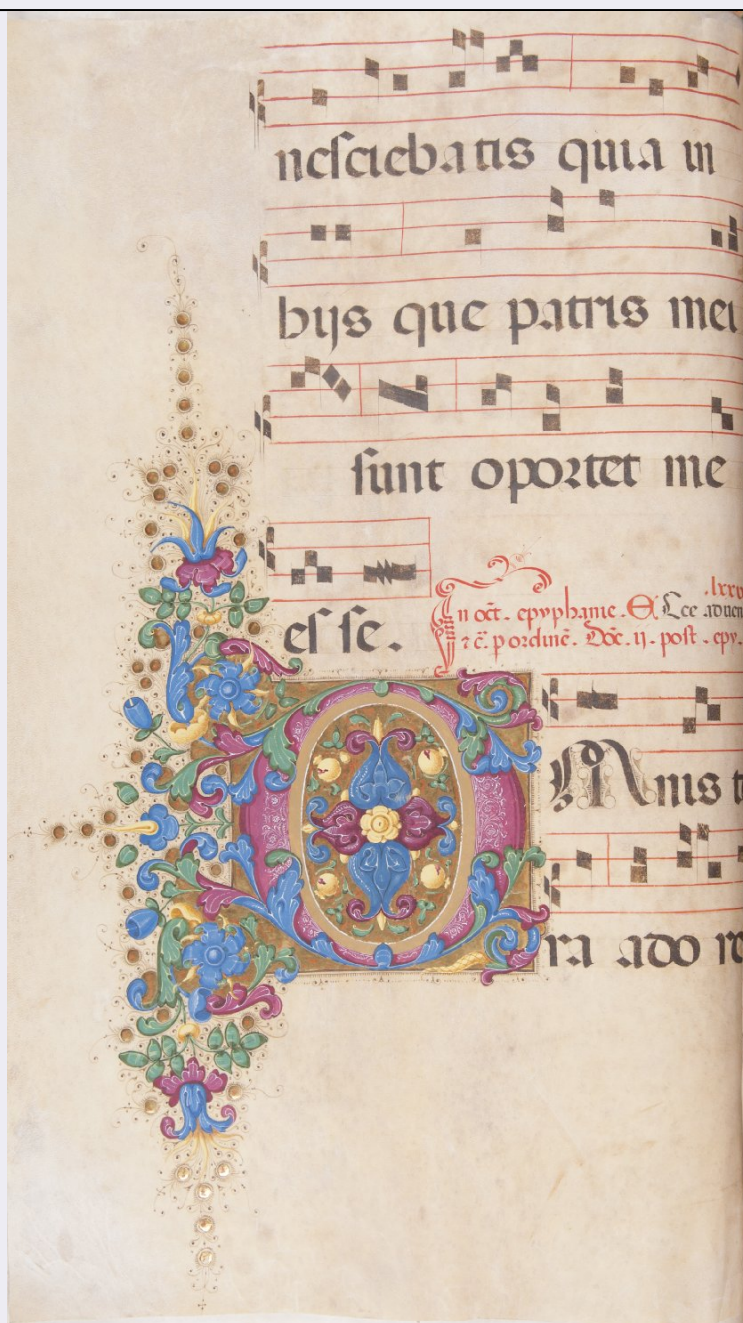 nesciebatis quia in
bijs que patris mei
sunt oportet me
esse.
In oct̄. epyphanie. Ecce aduen
⁊ c̄. p ordinē. Dō̄c. ij. post. epy.
OMnis t
rra ado re